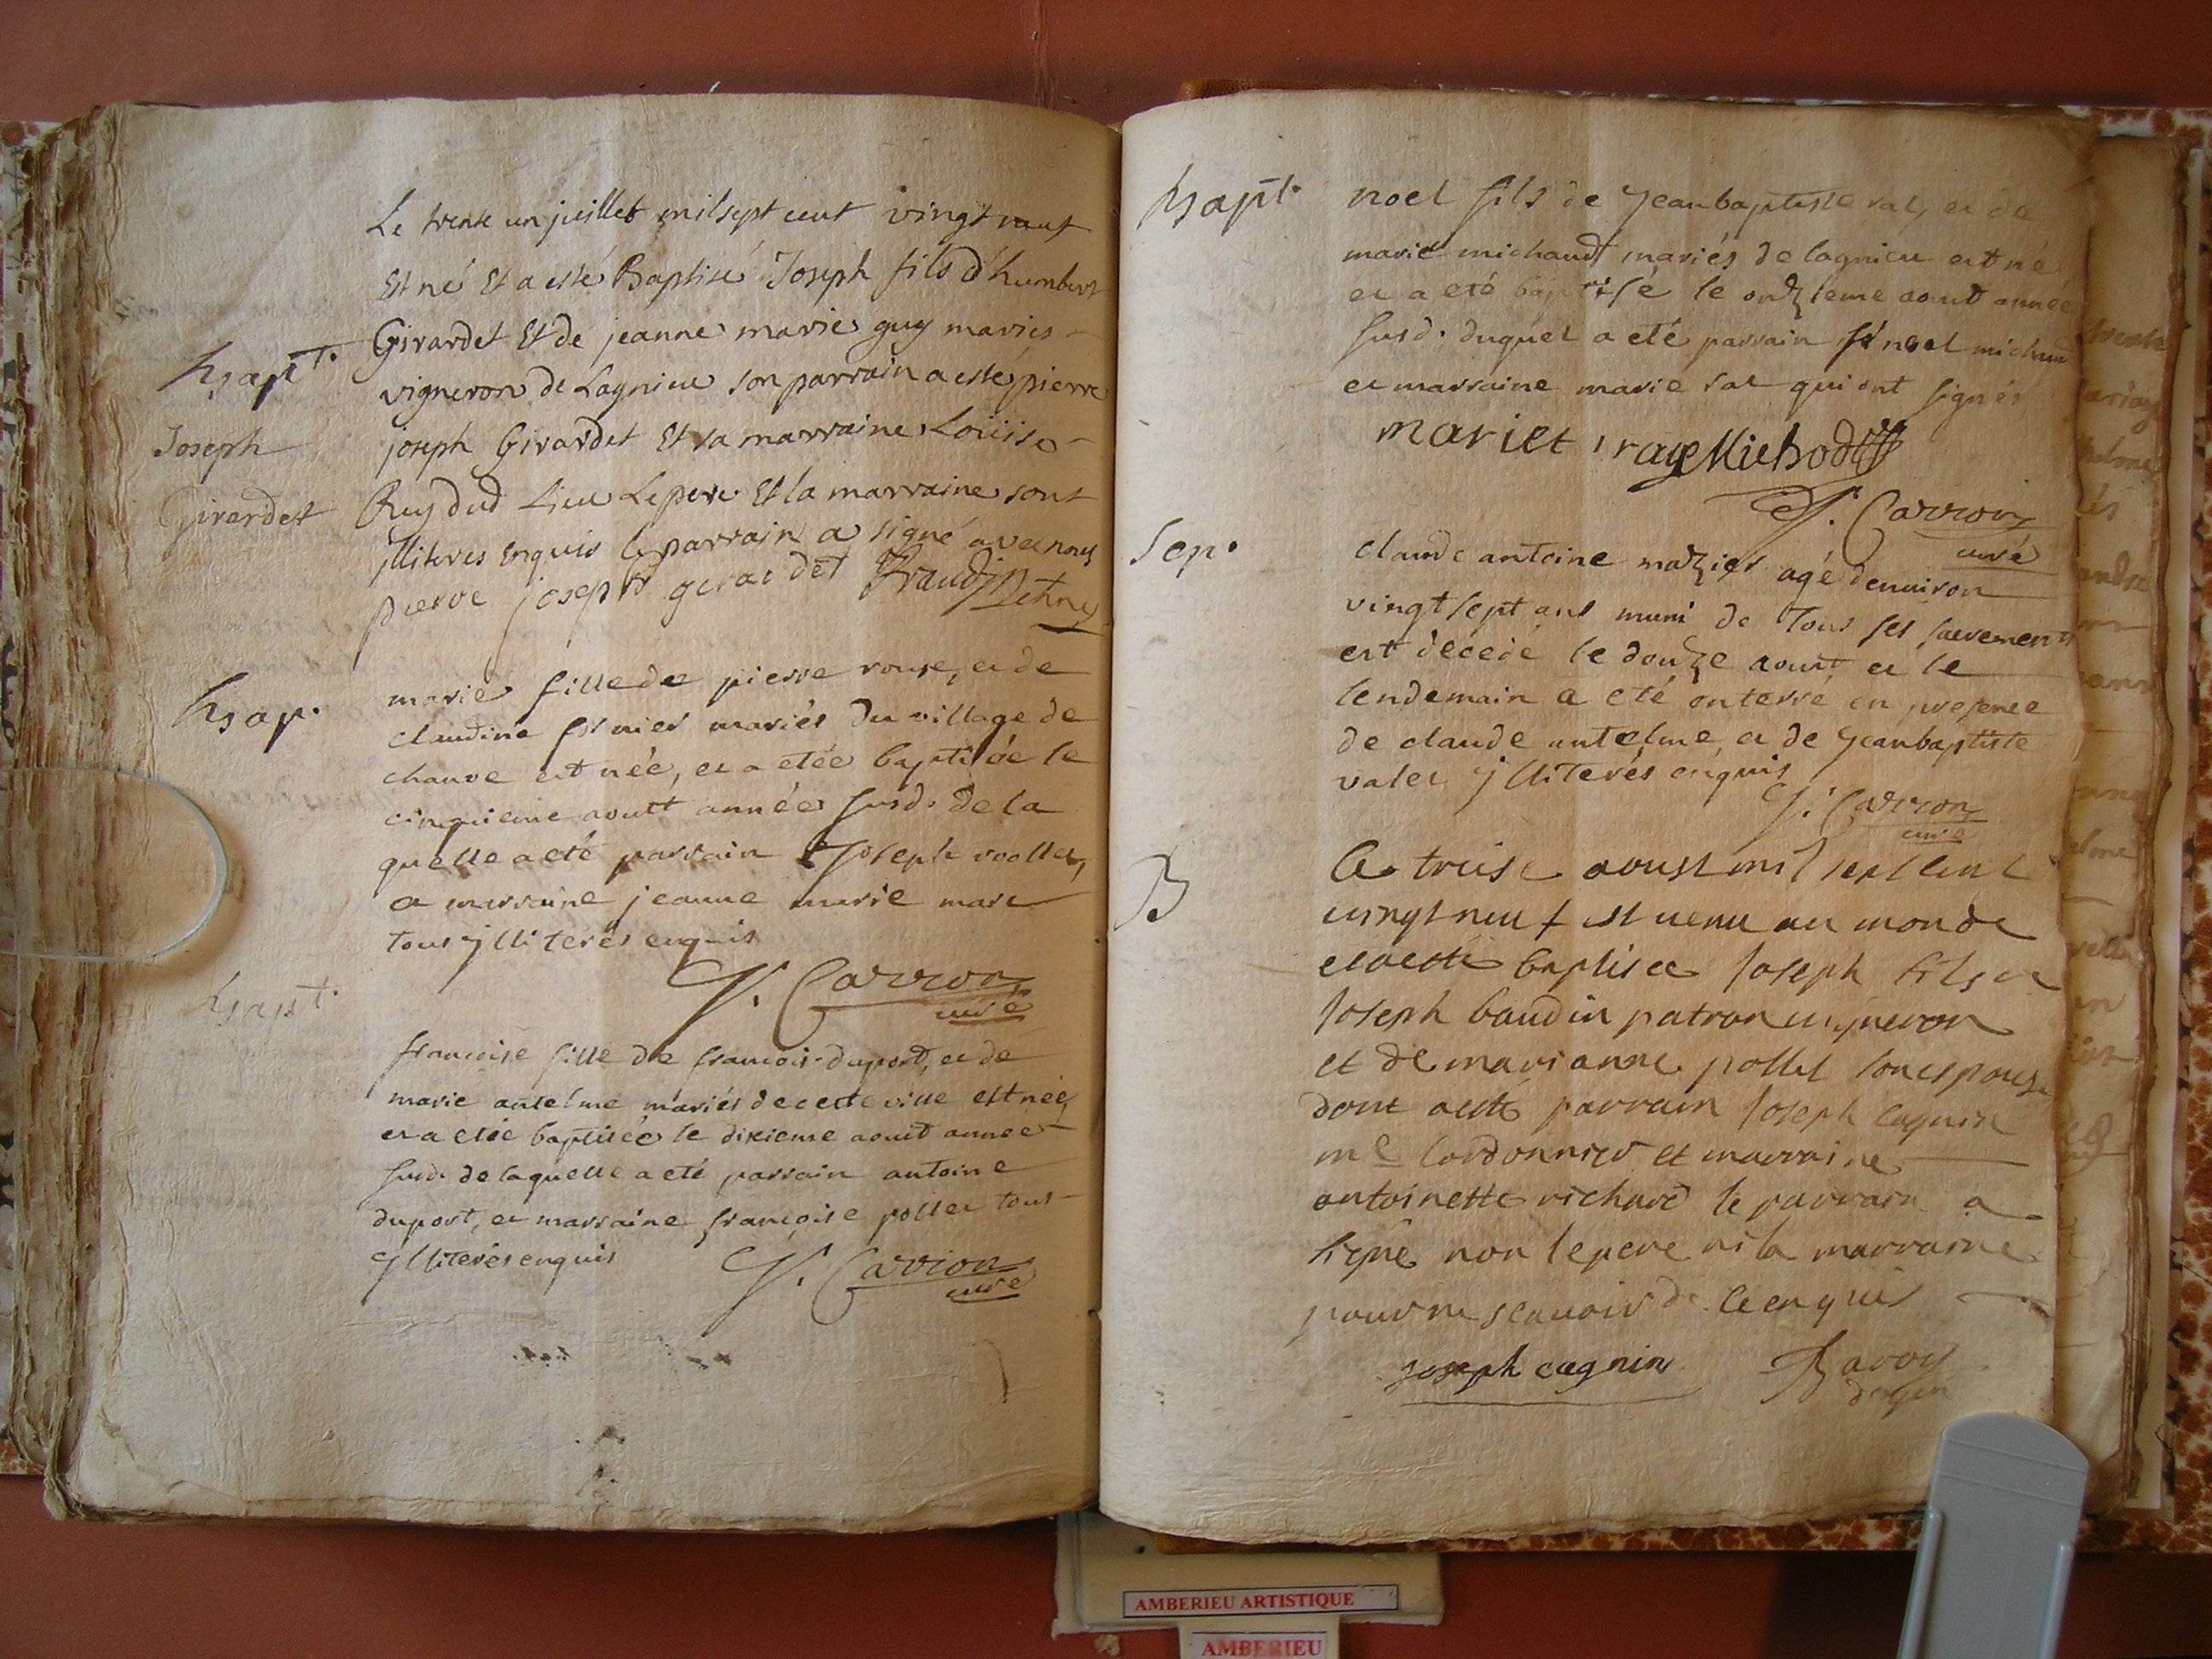 Le trente un juillet mil sept cent vingt neuf
Est né Et a esté Baptisé Joseph fils d'humbert
Girardet Et de jeanne marie guy maries
bapt.
vigneron de Lagnieu son parrain a esté pierre
Joseph
joseph Girardet Et sa marraine Loüise
Girardet
Ruy dud Lieu Le pere Et la marraine sont
jlliteres enquis le parrain a signé avec nous
pierre joseph girardet
bap.
marie fille de pierre rouse, et de
claudine fornier mariés du village de
chanve est née, et a etée baptisée le
cinquieme aoust année susd. de la
quelle a eté parrain Joseph
et marraine jeanne marie
tous jlliterés enquis
J. Carron
curé
bapt.
francoise fille de francois duport, et de
marie antelme mariés de cette ville est née,
et a etée baptisée le dixieme aoust annee
susd. de laquelle a eté parrain antoine
duport, et marraine françoise pollet tous
jlliterés enquis J. Carron
curé
bapt.
noel fils de Jean baptiste rat, et de
marie michaud mariés de lagnieu est né
et a eté baptisé le onzieme aoust année
susd. duquel a eté parrain sr noel michaud
et marraine marie rat qui ont signés
marie Michod
J. Carron
curé
Sep.
claude antoine mazier agé denuiron
vingt sept ans muni de Tous ses sacrements
est decedé le douze aoust et le
lendemain a eté enterré en presence
de claude antelme, et de Jean baptiste
valet jlliterés enquis
J. Carron
curé
B
Le treise aoust mil sept cent
uingt neuf est uenu au monde
et a esté baptisé Joseph fils a
Joseph baudin patron uigneron
et de marianne pollet son espouse
dont a esté parrain Joseph cagnin
me Cordonnier et marraine
antoinette richard le parrain a
signé non le pere ni la marraine
pour ne scauoir de ce enquis
joseph cagnin
AMBERIEU ARTISTIQUE
AMBERIEU